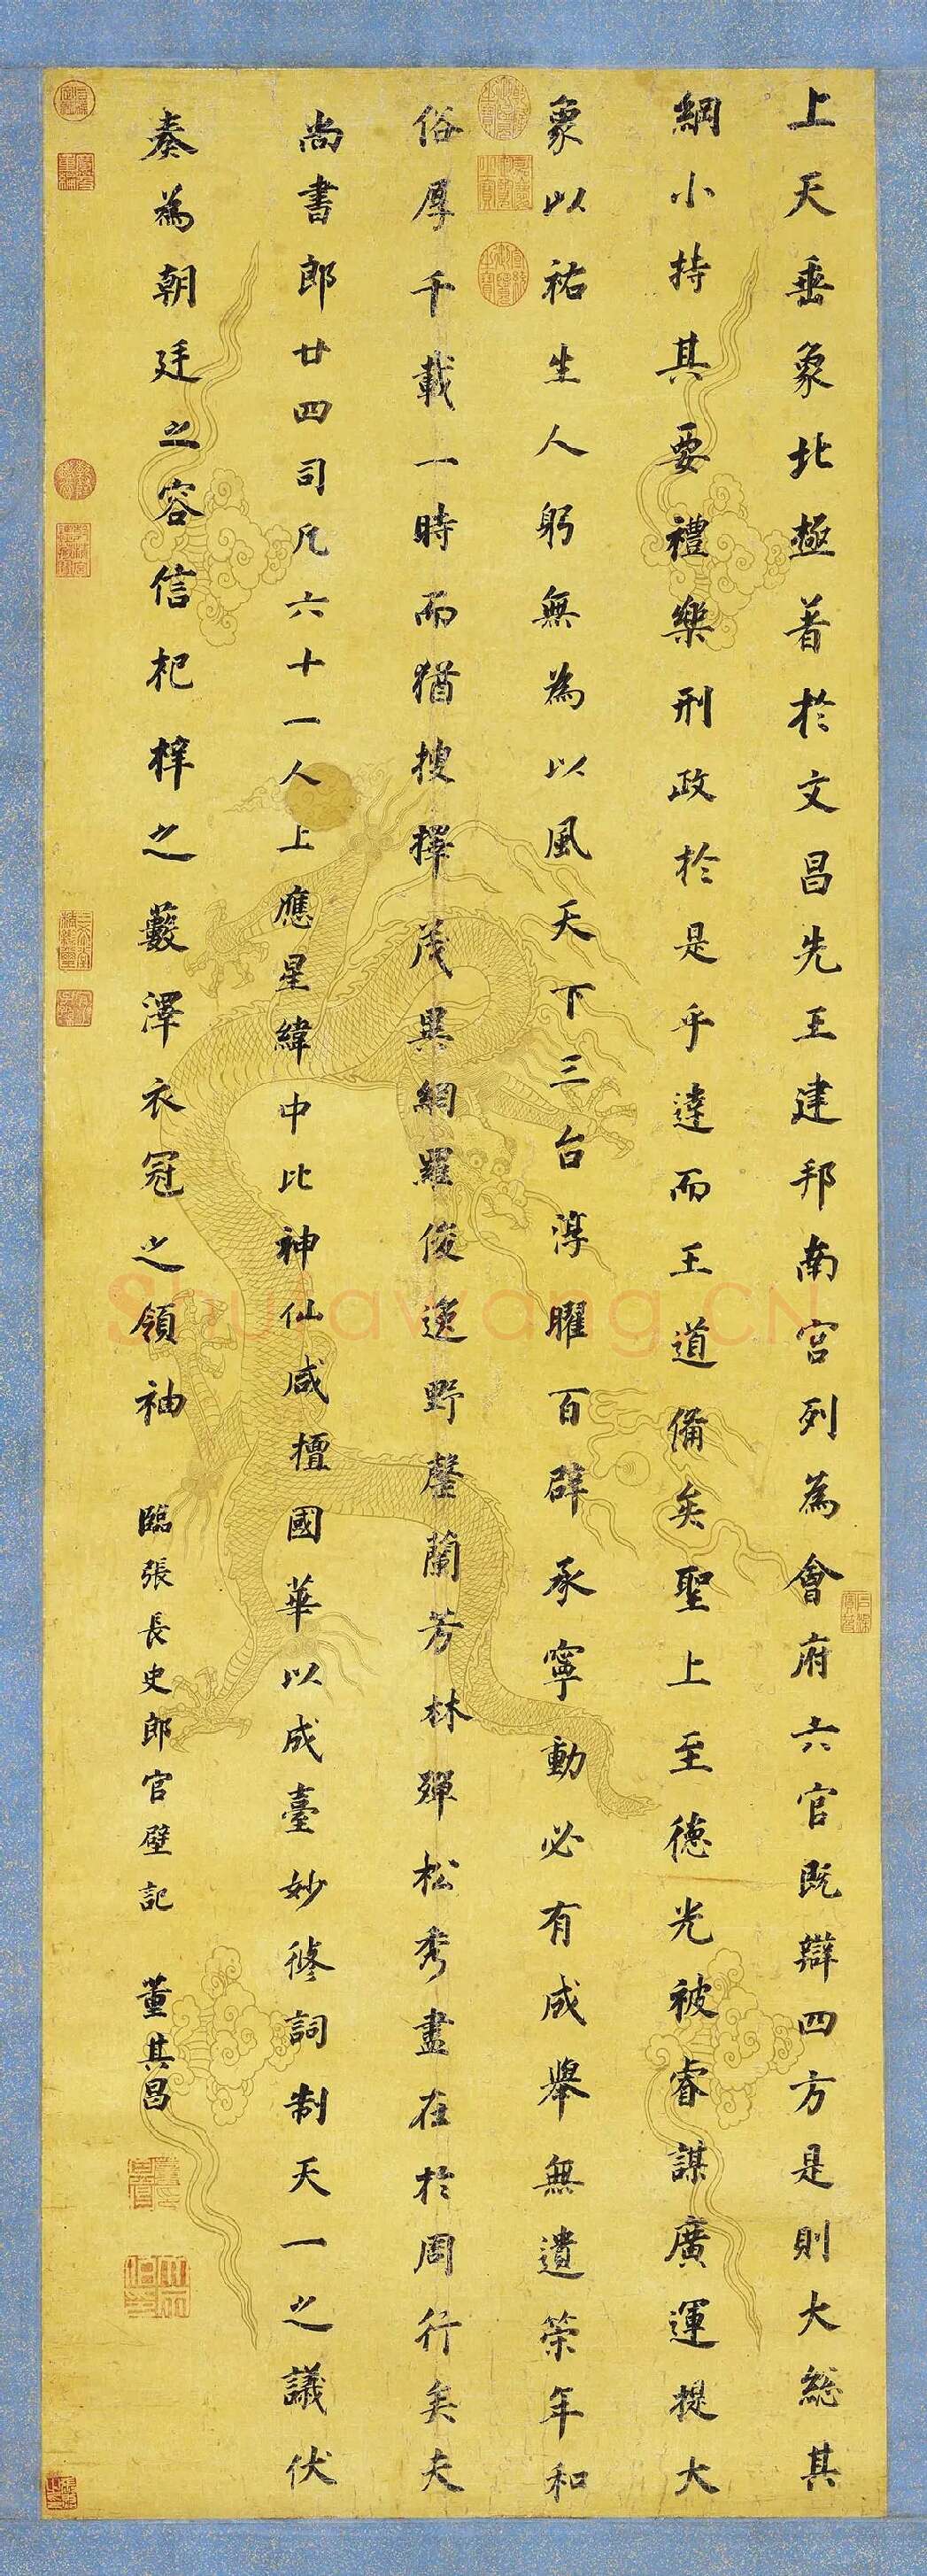 上天垂象北極著於文昌先王建邦南宮列為會府六官既辯四方是則大総其
綱小持其要禮樂刑政於是乎達而王道備矣聖上至德光被睿謀廣運提大
象以祐生人躬無為以風天下三台淳曜百辟承寧動必有成舉無遺策年和
俗厚千載一時而猶搜擇茂異網羅俊逸野罄蘭芳林殫松秀盡在於周行矣夫
尚書郎廿四司凡六十一人上應星緯中比神仙咸擅國華以成臺妙修詞制天一之議伏
奏為朝廷之容信杞梓之藪澤衣冠之領袖 臨張長史郎官壁記 董其昌
Shufawang.CN